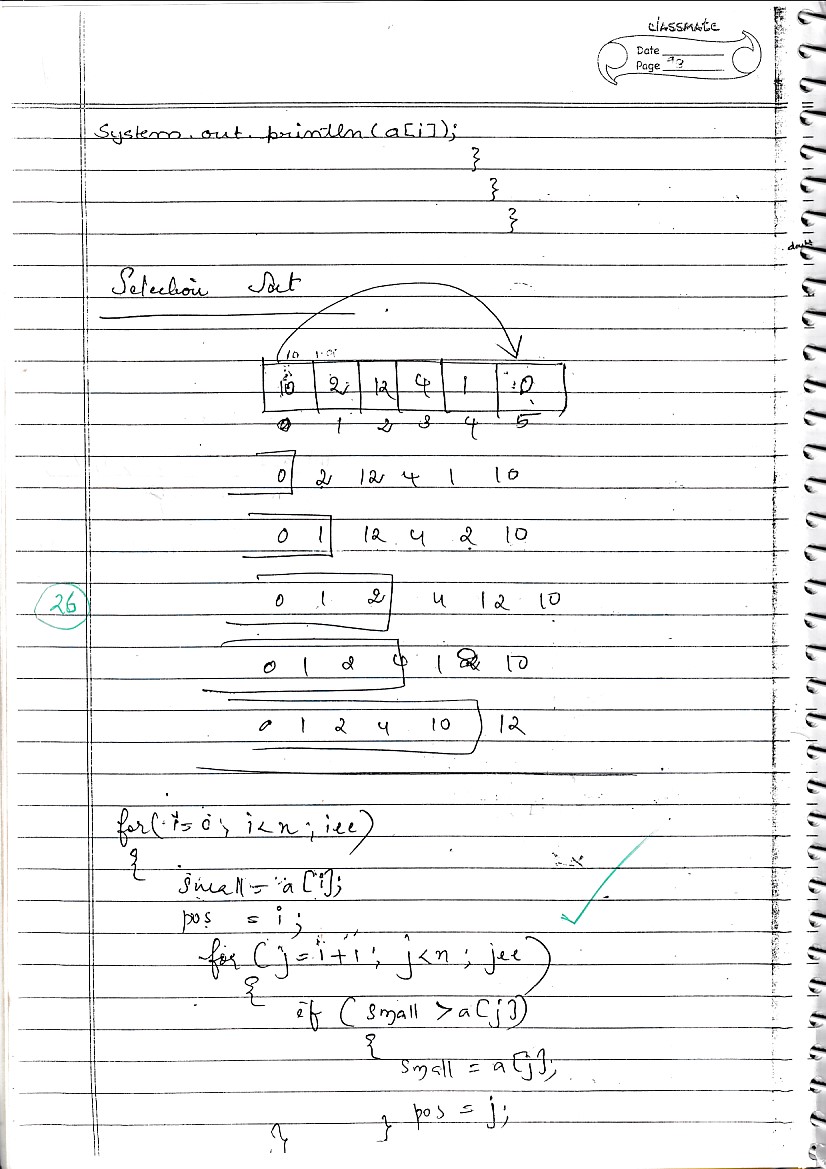 classmate
Date
Page
System.out.println(a[i]);
}
}
}
Selection Sort
10
10 2 12 4 1 0
0 1 2 3 4 5
0 2 12 4 1 10
0 1 12 4 2 10
26
0 1 2 4 12 10
0 1 2 4 12 10
0 1 2 4 10 12
for(i=0; i<n; i++)
{
small = a[i];
pos = i;
for (j=i+1; j<n; j++)
{
if (small > a[j])
{
small = a[j];
pos = j;
} }